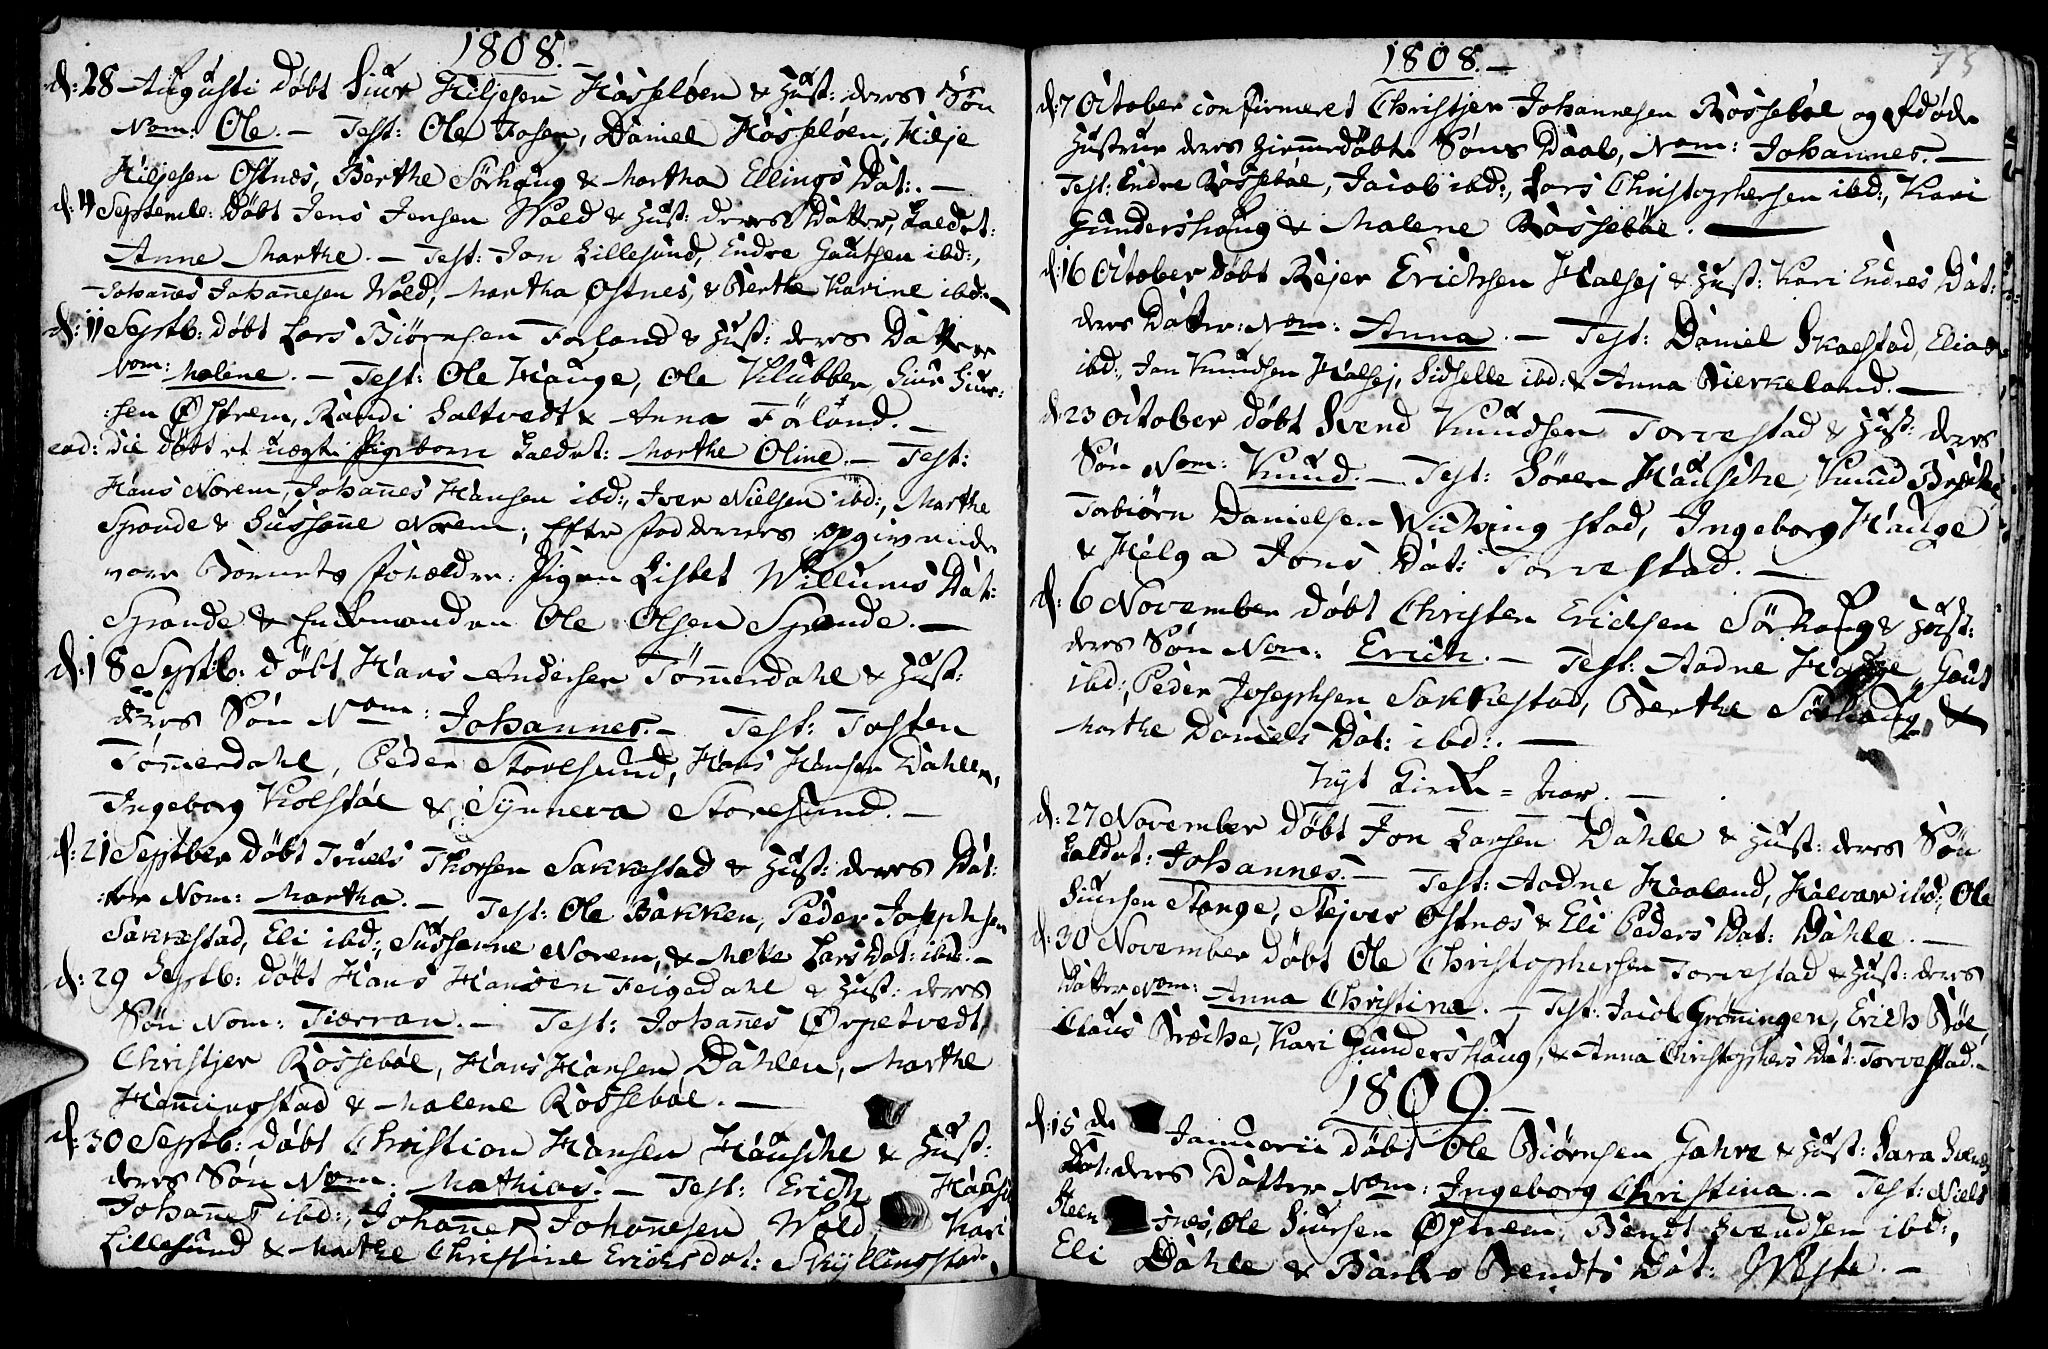 1808.-
d: 28 Augusti döbt Siur Hiljesen Hasseløen & Hust: deres Søn
Nom: Ole. - Test: Ole Fosen, Daniel Hasseløen, Hilje
Hiljesen Ostnes, Berthe Sørhaug & Martha Ellings Dat:. -
d: 4 Septembr: Döbt Jens Jensen Wold & Hust: deres Datter, kaldet:
Anne Marthe. - Test: Jon Lillesund, Endre Gautsen ibd:,
Johañes Johañesen Wold, Martha Østnes, & Berthe Karine ibd:. -
d: 11 Septb: döbt Lars Biörnsen Forland & Hust: deres Datter
Nom: Malene. - Test: Ole Hauge, Ole Klubben, Siur Siur:
:sen Østrem, Randi Saltvedt & Anna Förland. -
eod: die döbt et uægte Pigebarn kaldet: Marthe Oline. - Test:
Hans Norem, Johañes Hansen ibd:, Iver Nielsen ibd:, Marthe
Spande & Sussane Norem; Efter faddernes opgivende
vare Barnets forældre: Pigen Lisbet Willums Dat:
Spande & Enkemanden Ole Olsen Spande. -
d: 18 Septb: döbt Hans Andersen Tömmerdahl & Hust:
deres Søn Nom: Johannes. - Test: Tosten
Tömerdahl, Peder Storesund, Hans Hansen Dahlen,
Ingeborg Kolstöe & Synneva Storesund. -
d: 21 Septber döbt Truels Thorsen Sakkestad & Hust: deres Dat:
:ter Nom: Martha. - Test: Ole Bakken, Peder Josephsen
Sakkestad, Eli ibd:, Sussanne Norem, & Mette Lars Dat: ibd:. -
d: 29 Septb: döbt Hans Hansen Feigedahl & Hust: deres
Søn Nom: Tiærran. - Test: Johañes Ørpetvedt,
Christjer Rossebøe, Hans Hansen Dahlen, Marthe
Hemingstad & Malene Rossebøe. -
d: 30 Septb: döbt Christian Hansen Hausche & Hust:
deres Søn Nom: Mathias. - Test: Erich Hausche
Johañes ibd:, Johañes Johañesen Wold, Kari
Lillesund & Marthe Christine Erichsdat: Skyllingstad.
1808. -
75
d: 7 October confirmeret Christjer Johannesen Rossebøe og Afdøde
Hustrue deres hiemmedöbte Søns Daab, Nom: Johannes. -
Test: Endre Rossebøe, Jacob ibd:, Lars Christophersen ibd:, Kari
Gundershaug & Malene Rossebøe. -
d: 16 October döbt Rejer Erichsen Halsej & Hust: Kari Endres Dat:
deres Datter: Nom: Anna. - Test: Daniel Skaestad, Elias
ibd:, Jan Knudsen Halsej, Sidselle ibd: & Anna Birkeland. -
d: 23 October döbt Svend Knudsen Torvestad & Hust: deres
Søn Nom: Knud. - Test: Sören Hausche, Knud Bræche,
Torbiörn Danielsen Widving stad, Ingeborg Hauge
& Helga Jons Dat: Torvestad. -
d: 6 November döbt Christen Erichsen Sörhaug & Hust:
deres Søn Nom: Erich. - Test: Aadne Hauge, Gaut
ibd:, Peder Josephsen Sakkestad, Berthe Sörhaug, &
Marthe Daniels Dat: ibd:. -
Nyt Kirke = Aar. -
d: 27 November döbt Jon Larsen Dahle & Hust: deres Søn
kaldet: Johannes. - Test: Aadne Haaland, Halvar ibd:, Ole
Siursen Stange, Stejver Ostnes & Eli Peders Dat: Dahle. -
d: 30 November döbt Ole Christophersen Torvestad & Hust: deres
Datter Nom: Anna Christina. - Test: Jacob Gröningen, Erich Bøe,
Claus Bræche, Kari Gundershaug, & Anna Christophers Dat: Torvestad. -
1809. -
d: 15 de Januarii döbt Ole Biörnsen Gahre & Hust: Sara Svends
Dat: deres Datter Nom: Ingeborg Christina. - Test: Niels
Steen snes, Ole Siursen Østrem, Bendt Svendsen ibd:,
Eli Dahle & Barbro Bendts Dat: Weste. -